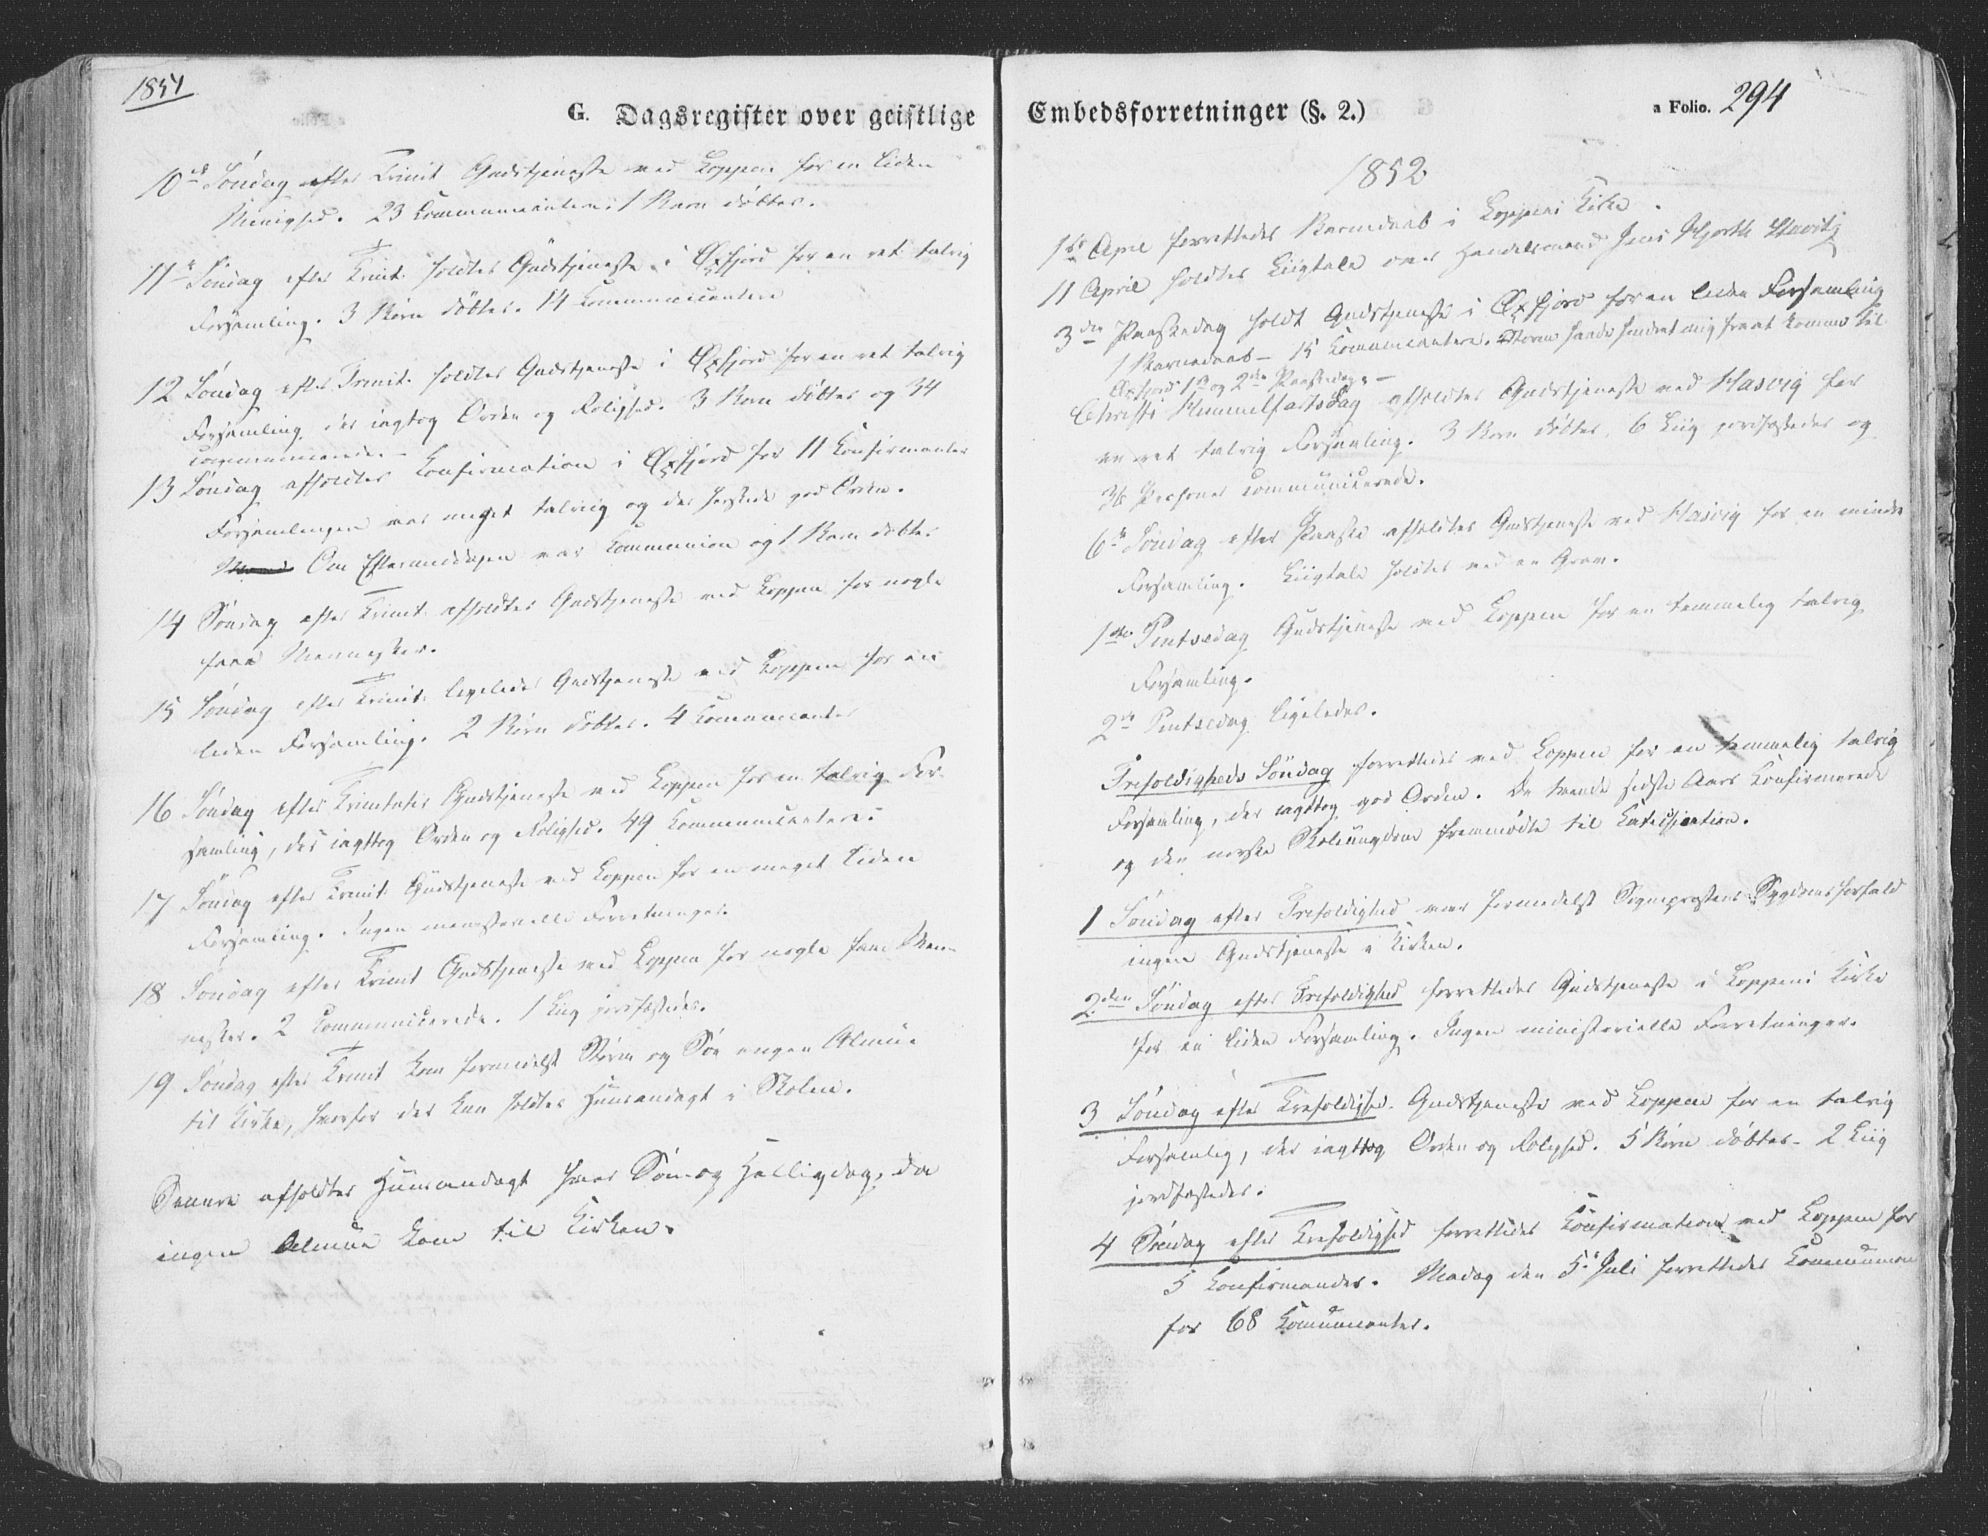 1851
G. Dagsregister over geistlige
10de Søndag efter Trinit Gudstjeneste ved Loppen for en liden
Menighed. 23 Communicantere. 1 Barn døbtes.
11te Søndag efter Trinit. holdtes Gudstjeneste i Øxfjord for en ret talrig
Forsamling. 3 Børn døbtes. 14 Communicantere
12 Søndag efter Trinit. holdtes Gudstjeneste i Øxfjord for en ret talrig
Forsamling, der iagttog Orden og Rolighed. 3 Børn døbtes og 34
communicerede.
13 Søndag afholdtes Confirmation i Øxfjord for 11 Konfirmanter
Forsamlingen var meget talrig og der herskede god Orden.
Om Eftermiddagen var Communion og 1 Barn døbtes
14 Søndag efter Trinit. afholdtes Gudstjeneste ved Loppen for nogle
faae Mennesker.
15 Søndag efter Trinit. ligeledes Gudstjeneste ved Loppen for en
liden Forsamling. 2 Børn døbtes. 4 Communicanter
16 Søndag efter Trinitatis Gudstjeneste ved Loppen for en talrig For-
samling, der iagttog Orden og Rolighed. 49 Communicantere.
17 Søndag efter Trinit. Gudstjeneste ved Loppen for en meget liden
Forsamling. Ingen ministerielle Forretninger.
18 Søndag efter Trinit Gudstjeneste ved Loppen for nogle faae Men-
nesker. 2 Communicerede. 1 Liig jordfæstedes.
19 Søndag efter Trinit kom formedelst Storm og Søe ingen Almue
til Kirke, hvorfor der kun holdtes Huusandagt i Skolen.
Senere afholdtes Huusandagt hver Søn- og Helligdag, da
ingen Almue kom til Kirken.
Embedsforretninger (§. 2.)
a Folio. 294
1852
1ste April forrettedes Barnedaab i Loppens Kirke.
11 April holdtes Liigtale over Handelsmand Jens Hjorth
3die Paaskedag holdt Gudstjeneste i Øxfjord for en liden Forsamling
1 Barnedaab - 15 Communicantere. Storm havde hindret mig fra at komme til
Øxfjord 1ste og 2den Paaskedag. -
Christi Himmelfartsdag afholdtes Gudstjeneste ved Hasvig for
en ret talrig Forsamling. 3 Børn døbtes, 6 Liig jordfæstedes og
36 Personer communicerede.
6te Søndag efter Paaske afholdtes Gudstjeneste ved Hasvig for en mindre
Forsamling. Liigtale holdtes ved en Grav.
1ste Pintsedag Gudstjeneste ved Loppen for en temmelig talrig
Forsamling.
2den Pintsedag ligeledes.
Trefoldigheds Søndag forrettedes ved Loppen for en temmelig talrig
Forsamling, der iagttog god Orden. De tvende sidste Aars Konfirmerede
og den norske Skoleungdom fremmødte til Katechisation.
1 Søndag efter Trefoldighed var formedelst Sognepræstens Sygdomsforfald
ingen Gudstjeneste i Kirken.
2den Søndag efter Trefoldighed forrettedes Gudstjeneste i Loppens Kirke
for en liden Forsamling. Ingen ministerielle Forretninger.
3 Søndag efter Trefoldighed. Gudstjeneste ved Loppen for en talrig
Forsamlig, der iagttog Orden og Rolighed. 5 Børn døbtes - 2 Liig
jordfæstedes.
4 Søndag efter Trefoldighed forrettedes Confirmation ved Loppen for
5 Confirmander. Madag den 5te Juli forrettedes Communion
for 68 Communicanter.